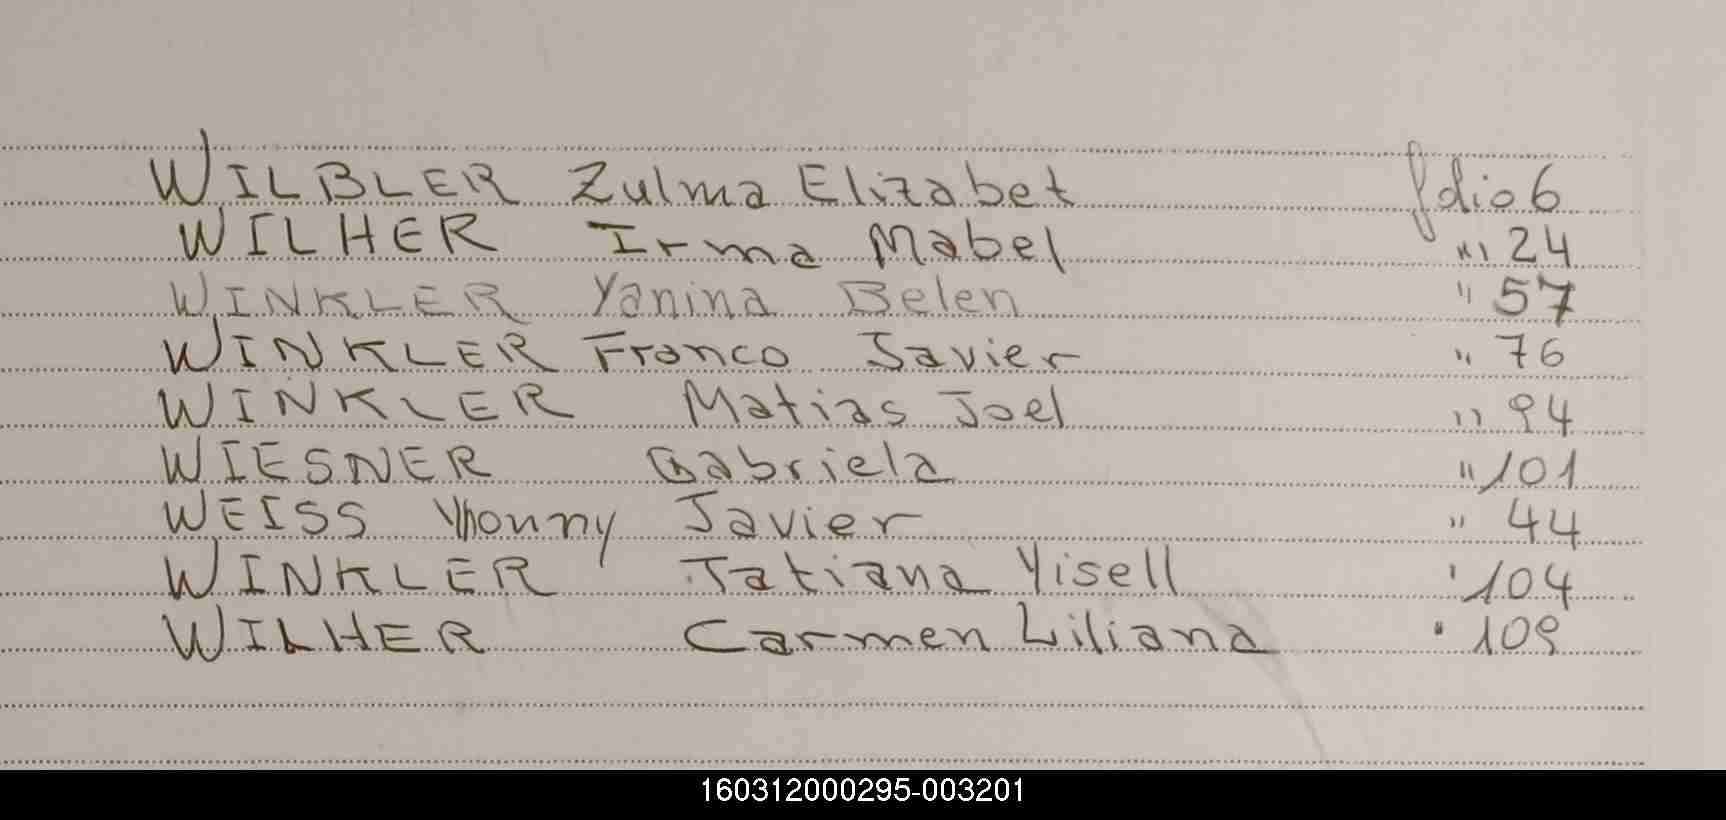 WILBLER Zulma Elizabet folio 6
WILHER Irma Mabel " 24
WINKLER Yanina Belen " 57
WINKLER Franco Javier " 76
WINKLER Matias Joel " 94
WIESNER Gabriela " 101
WEISS Javier " 44
WINKLER Tatiana Yisell ' 104
WILHER Carmen Liliana " 109
160312000295-003201